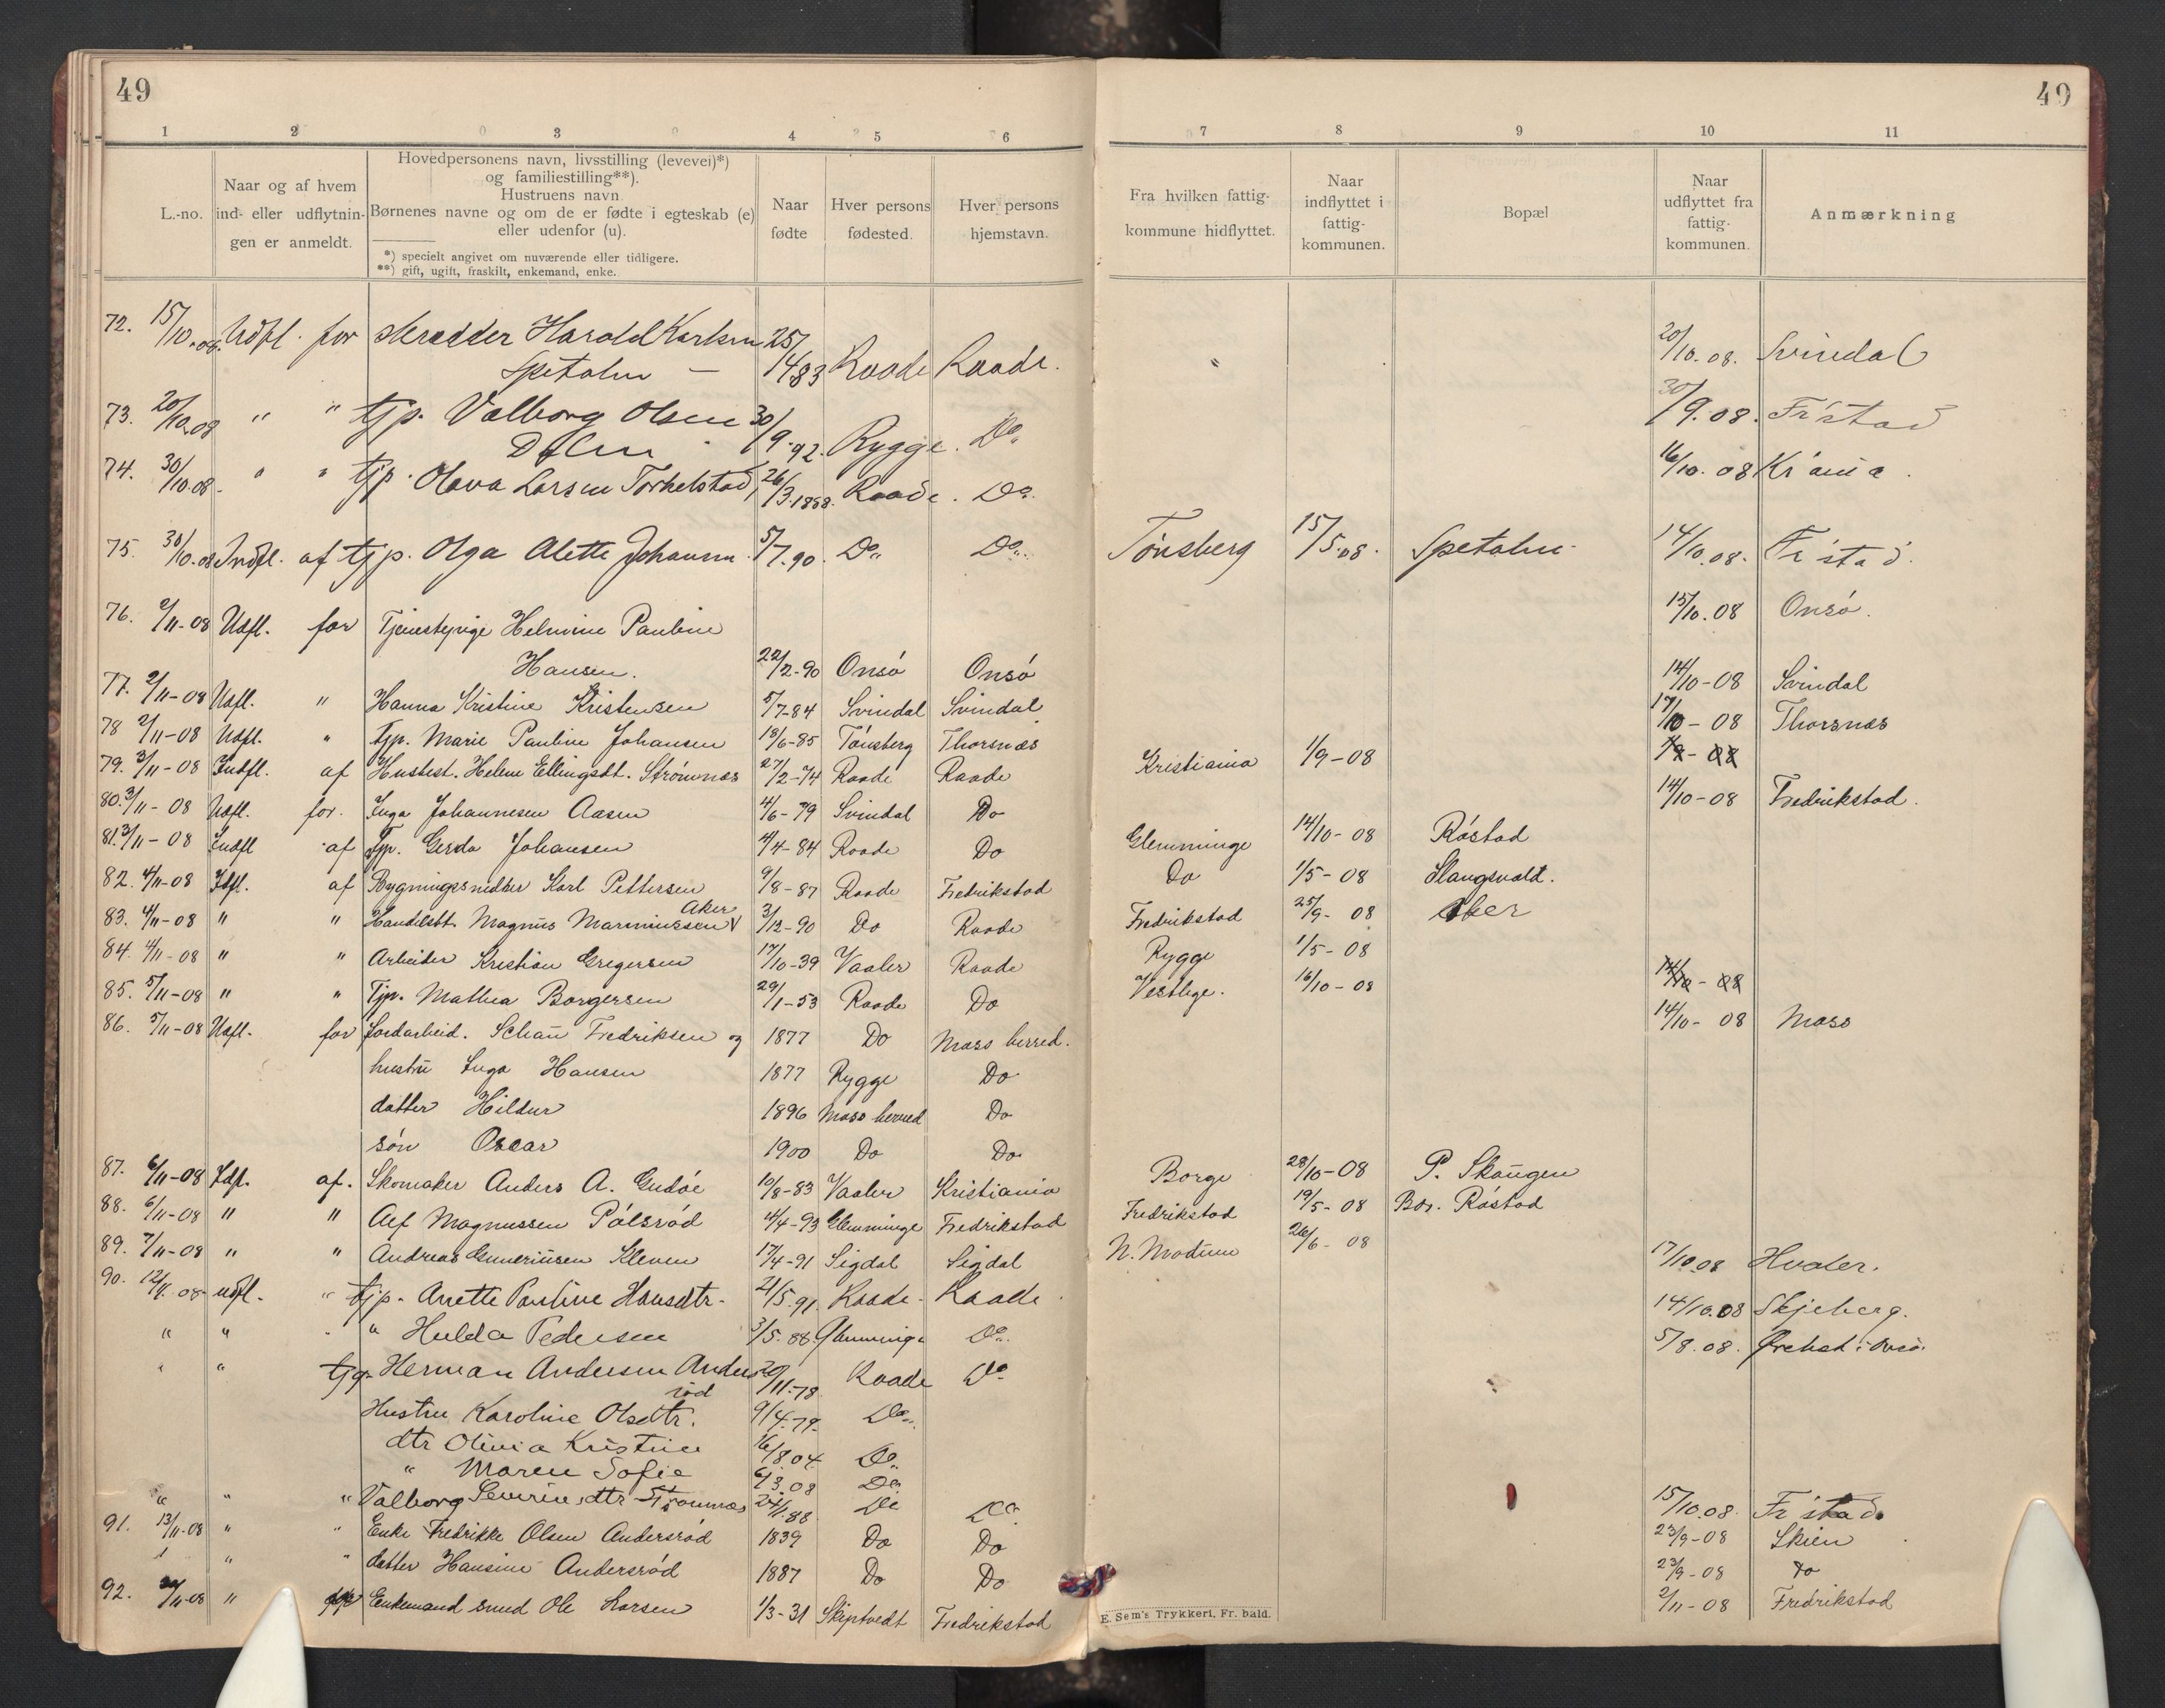 49
49
1 2 3 4 5 6 7 8 9 10 11
L.-no.
Naar og af hvem
ind- eller udflytnin-
gen er anmeldt.
Hovedpersonens navn, livsstilling (levevei)*)
og familiestilling**).
Hustruens navn
Børnenes navne og om de er fødte i egteskab (e)
eller udenfor (u).
*) specielt angivet om nuværende eller tidligere.
**) gift, ugift, fraskilt, enkemand, enke.
Naar
fødte
Hver persons
fødested.
Hver persons
hjemstavn.
Fra hvilken fattig-
kommune hidflyttet.
Naar
indflyttet i
fattig-
kommunen.
Bopæl
Naar
udflyttet fra
fattig-
kommunen.
Anmærkning
72. 15/10.08. Udfl. for skrædder Harald Karlsen 25/4 83 Raade Raade. 20/10.08. Svindal
Spetalen —
73. 20/10.08 " " tjp. Valborg Olsen 30/9.92. Rygge. Do. 30/9.08. Fr'stad
Dalen
74. 30/10.08. " " tjp. Olava Larsen Torkelstad, 26/3.1888. Raade. Do. 16/10.08 Kr'ania.
75. 30/10.08 Indfl. af tjp. Olga Alette Johansen 5/7.90. Do. Do. Tønsberg 15/5.08. Spetalen 14/10.08. Fr'stad.
76. 2/11-08 Udfl. for Tjenestepige Helmine Pauline 15/10.08 Onsø.
Hansen. 22/2-90 Onsø Onsø
77. 2/11-08 Udfl. " Hanna Kristine Kristensen 5/7-84 Svindal Svindal 14/10-08 Svindal
78 2/11-08 Udfl. " Tjp. Marie Pauline Johansen 18/6-85 Tønsberg Thorsnæs 17/10-08 Thorsnæs
79. 3/11-08 Indfl. af Hustest. Helene Ellingsdt. Strømnæs 27/2-74 Raade Raade Kristiania 1/9-08
80. 3/11-08 Udfl. for. Inga Johannesen Aasen 4/6-79 Svindal Do 14/10-08 Fredrikstad.
81. 3/11-08 Indfl af Tjp. Gerda Johansen 4/4-84 Raade Do Glemminge 14/10-08 Røstad
82. 4/11-08 Idfl. af Bygningssnedker Karl Pettersen 9/8-87 Raade Fredrikstad Do 1/5-08 Slangsvold.
83. 4/11-08 " " Handelsbt. Magnus Marminssen Aker 3/12-90 Do Raade Fredrikstad 25/9-08 Aker
84. 4/11-08 " " Arbeider Kristian Gregersen 17/10-39 Vaaler Raade Rygge 1/5-08
85. 5/11-08 " " Tjp. Mathea Borgersen 29/1-53 Raade Do Vestbye. 16/10-08 14/10-08
86. 5/11-08 Udfl. for Jordarbeid. Schau Fredriksen og 1877 Do Moss herred. 14/10-08 Moss
hustru Inga Hansen 1877 Rygge Do
datter Hildur 1896 Moss herred Do
søn Oscar 1900 Do Do
87. 6/11-08 Idfl. af. Skomaker Anders A. Gudøe 10/8-83 Vaaler Kristiania Borge 28/10-08 P. Skaugen
88. 6/11-08 " " Alf Magnussen Pålsrød 4/4-93 Glemminge Fredrikstad Fredrikstad 19/5-08 Bor. Røstad
89. 7/11-08 " " Andreas Gunneriusen Kleven 17/4-91 Sigdal Sigdal N. Modum 26/6-08
90. 12/11.08- udfl. " tjp. Anette Pauline Hansdtr. 21/5.91. Raade. Raade. 17/10.08 Hvaler.
" " " Hulda Pedersen 3/5.88. Glemminge Do. 14/10.08 Skjeberg.
" " tjg. Herman Andersen Anders 20/11.-78 Raade Do 5/8.08. Ørebek i Onsø.
rød
Hustru Karoline Olsdtr. 9/4.79. Do.
dtr Olivia Kristine 16/8.04 Do.
" Maren Sofie 6/3.08 Do
" " " Valborg Severinsdtr Strømnæs 24/1.88 Do Do. 15/10.08. Fr'stad.
91. 13/11-08 " " Enke Fredrikke Olsen Andersrød 1839 Do Do 23/9-08 Skien
" " datter Hansine Andersrød 1887 Do Do 23/9-08 do
92. /11-08 " Enkemand smed Ole Larsen 1/3-31 Skiptvedt Fredrikstad 2/11-08 Fredrikstad
E. Sem's Trykkeri, Fr. hald.